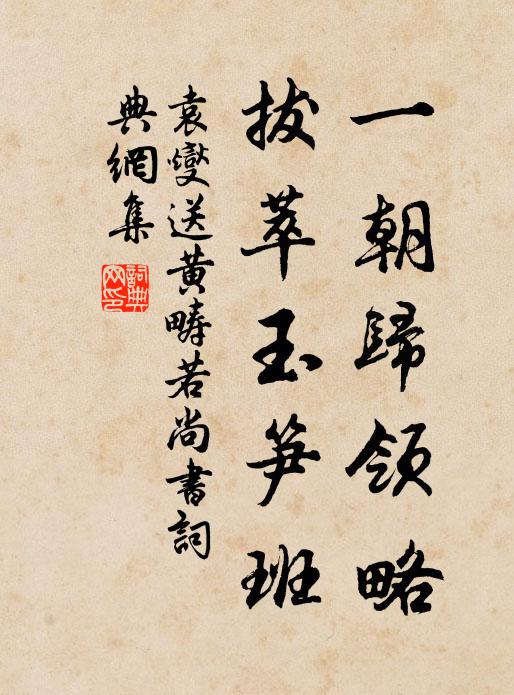 一朝歸領略
拔萃玉笋班
袁燮送黃疇若尚書詞
典網集
詞典
网印